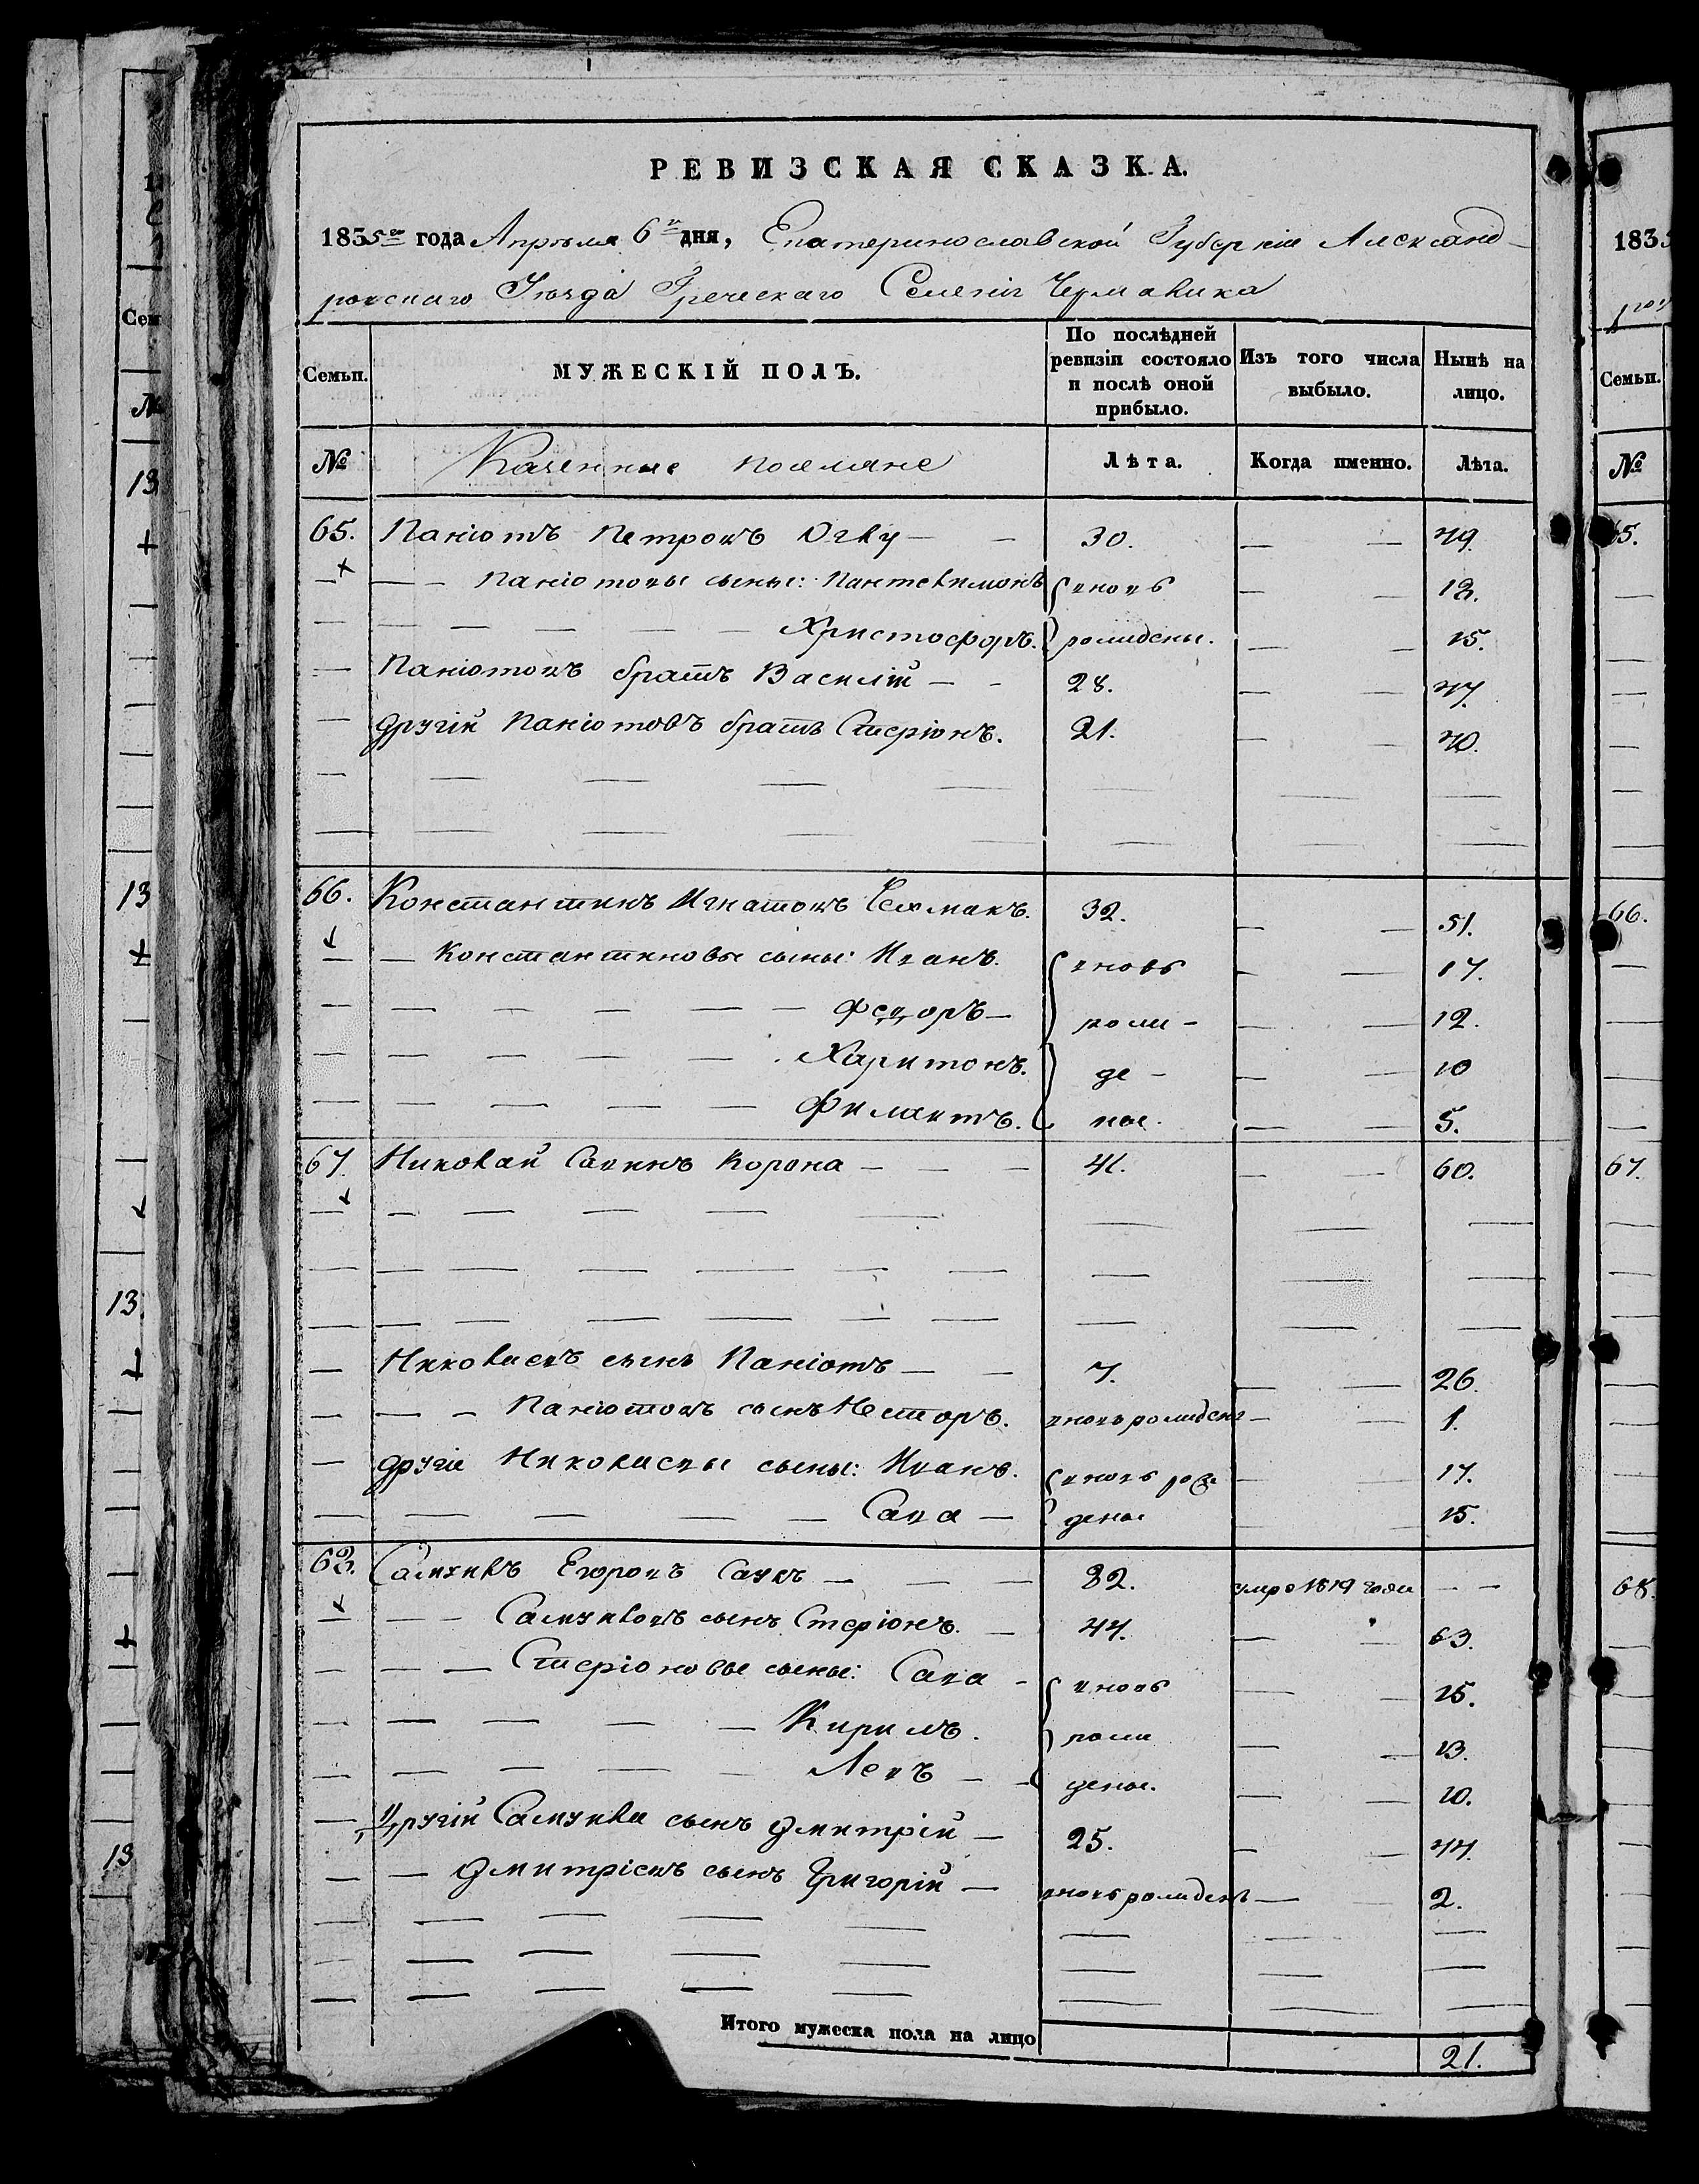 РЕВИЗСКАЯ СКАЗКА.
1835го года Апреля 6го дня, Екатеринославской Губерніи Александ-
ровскаго Уезда Греческаго Селенія Чермалика
Семьи. МУЖЕСКІЙ ПОЛЪ. По послѣдней ревизіи состояло и послѣ оной прибыло. Изъ того числа выбыло. Нынѣ на лицо.
№ Казенные поселяне Лѣта. Когда именно. Лѣта.
65. Паніотъ Петровъ 30. 49.
Паніотовы сыны: Пантелимонъ вновь 18.
Христофоръ. рожидены. 15.
Паніотовъ братъ Василій 28. 47.
Другій Паніотовъ братъ Стеріонъ. 21. 40.
66. Константинъ Игнатовъ 32. 51.
Константиновы сыны: Иванъ. вновь 17.
Федоръ рожи- 12.
Харитонъ. де- 10
Филиптъ. ные. 5.
67. Николай Савинъ Корона 41. 60.
Николаевъ сынъ Паніотъ 7. 26.
Паніотовъ сынъ Несторъ. вновь рожиденъ 1.
другіе Николаевы сыны: Иванъ. вновь рож 17.
Сава дены 15.
68. Самуилъ Егоровъ Савъ 82. умре 1819 года
Самуиловъ сынъ Стеріонъ. 44. 63.
Стеріоновы сыны: Сава вновь 15.
Кирилъ. рожи 13.
Левъ дены. 10.
Другій Самуила сынъ Дмитрій 25. 44.
Дмитріевъ сынъ Григорій вновь рожиденъ 2.
Итого мужеска пола на лицо 21.